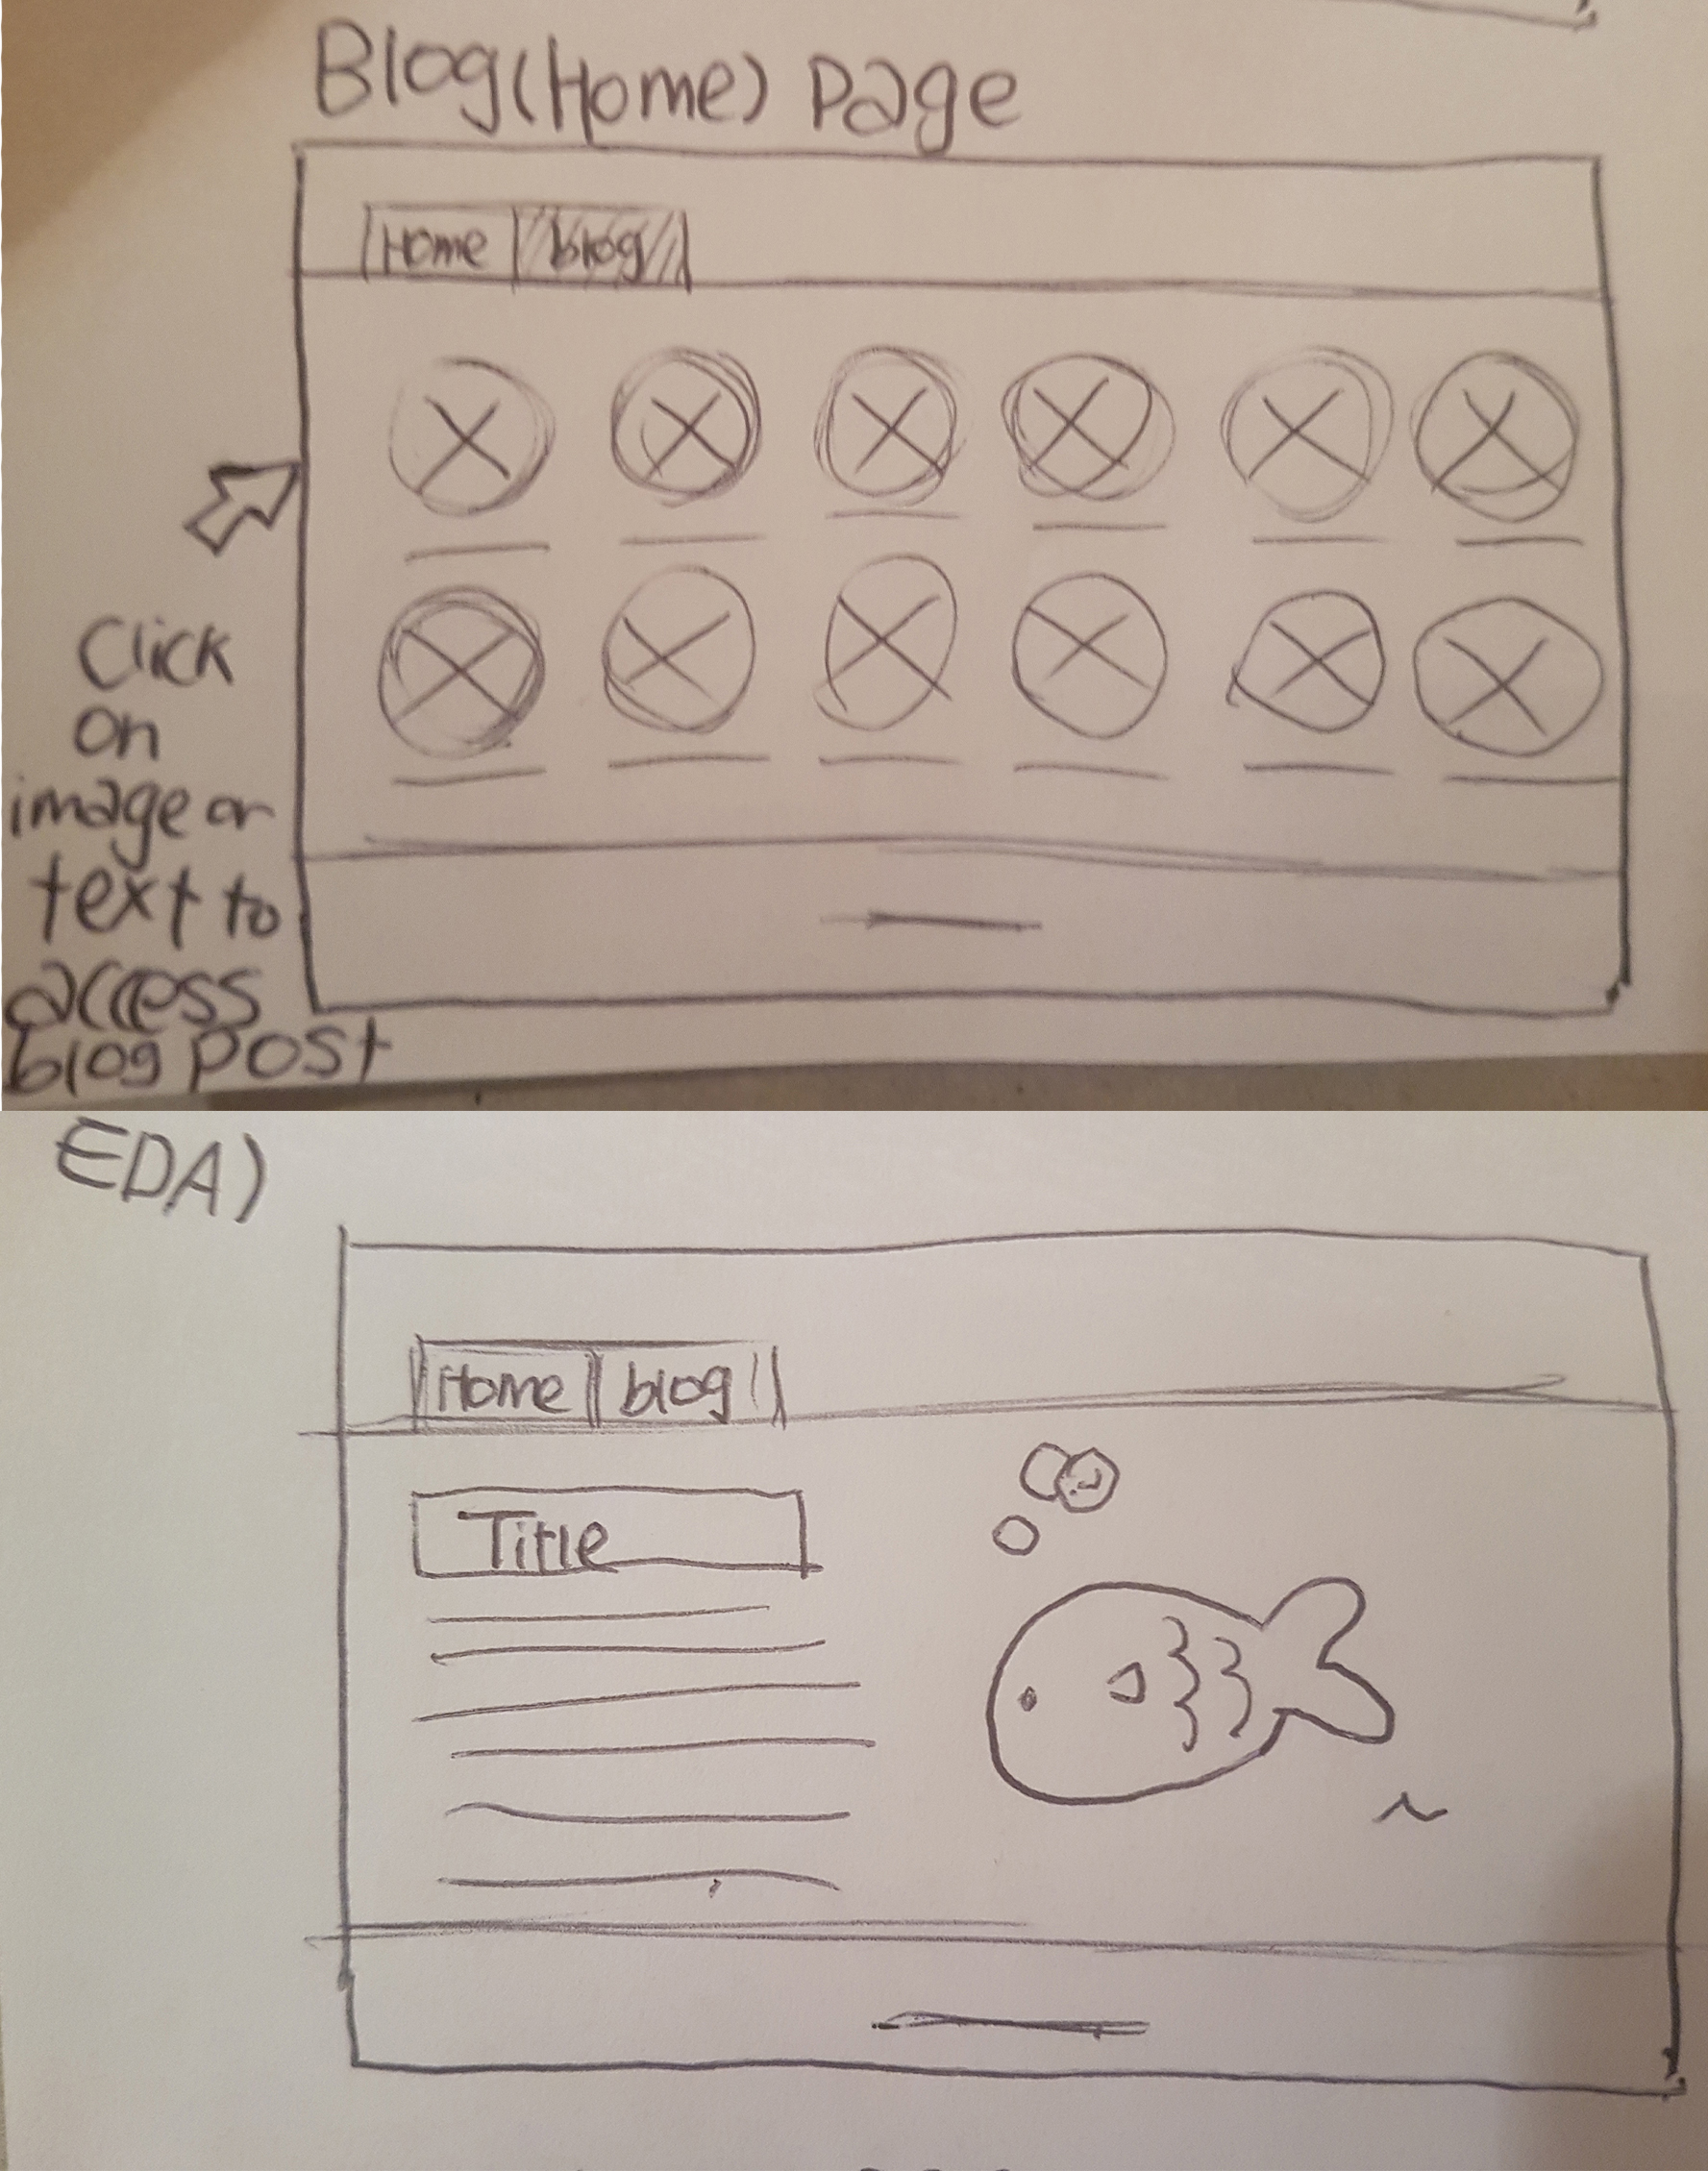 Blog(Home) Page
Home blog
Click
on
image or
text to
access
blog post
EDA)
Home blog
Title